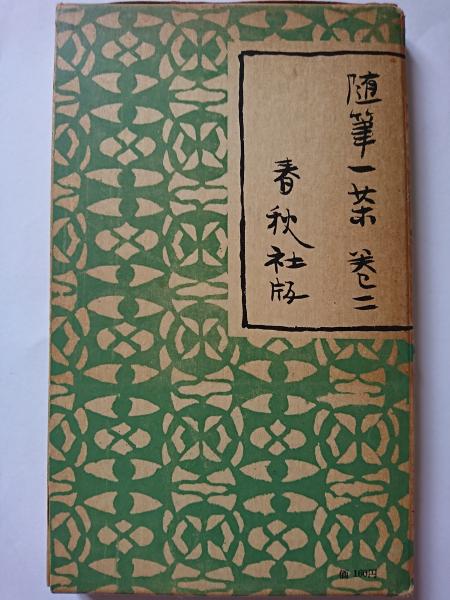 随筆一茶 巻二
春秋社版
価 160円